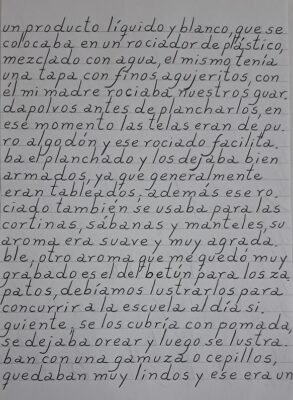 un producto líquido y blanco, que se
colocaba en un rociador de plástico,
mezclado con agua, el mismo tenía
una tapa con finos agujeritos, con
él mi madre rociaba nuestros guar.
dapolvos antes de plancharlos, en
ese momento las telas eran de pu.
ro algodón y ese rociado facilita.
ba el planchado y los dejaba bien
armados, ya que generalmente
eran tableados, además ese ro.
ciado también se usaba para las
cortinas, sábanas y manteles, su
aroma era suave y muy agrada.
ble, otro aroma que me quedó muy
grabado es el del betún para los za.
patos, debíamos lustrarlos para
concurrir a la escuela al día si.
guiente, se los cubría con pomada,
se dejaba orear y luego se lustra.
ban con una gamuza o cepillos,
quedaban muy lindos y ese era un